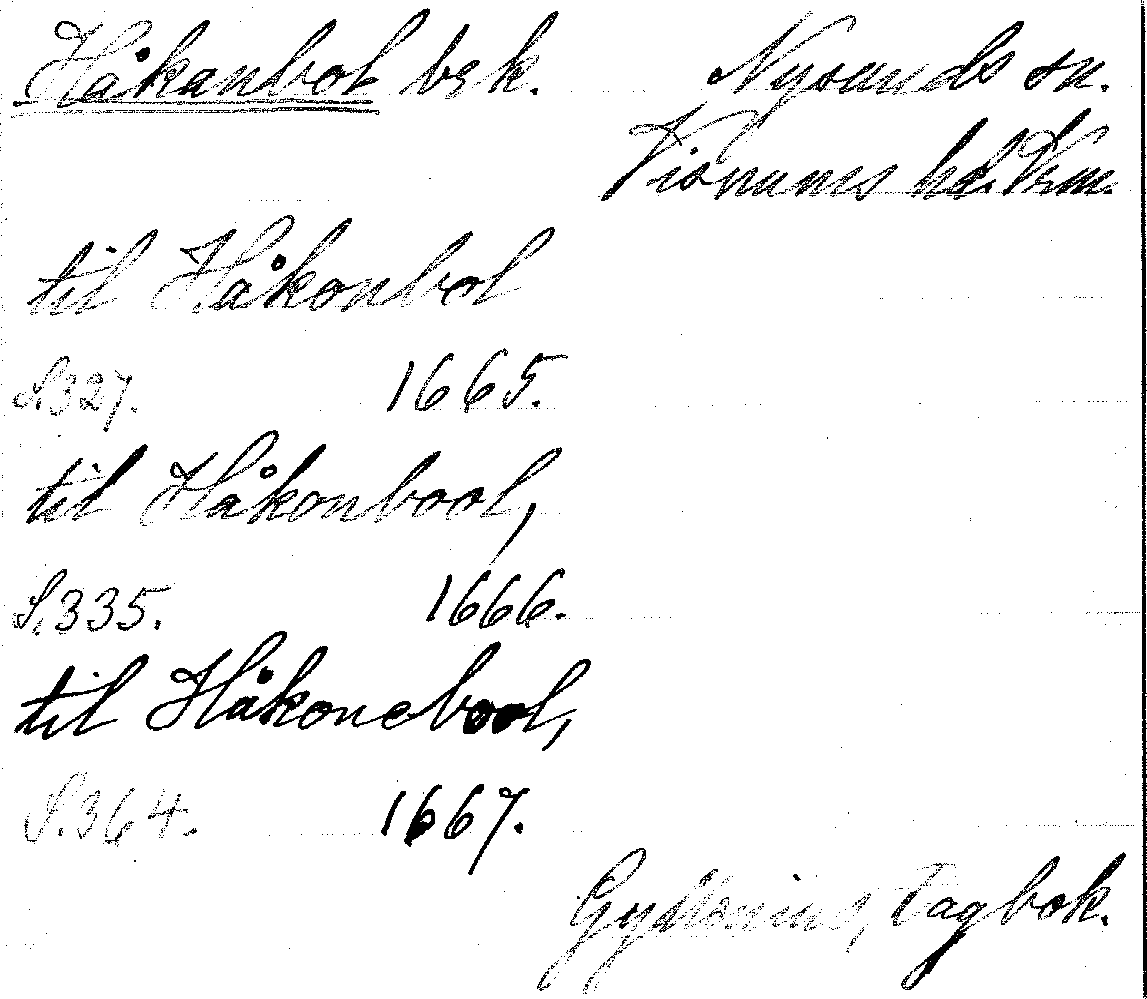 Håkanbol brk. Nysunds sn.
Visnums hd. Vrm.
til Håkonbol
S.327. 1665.
til Håkonbool,
S.335. 1666.
til Håkonebool,
S.364. 1667.
Gyldenius, Dagbok.